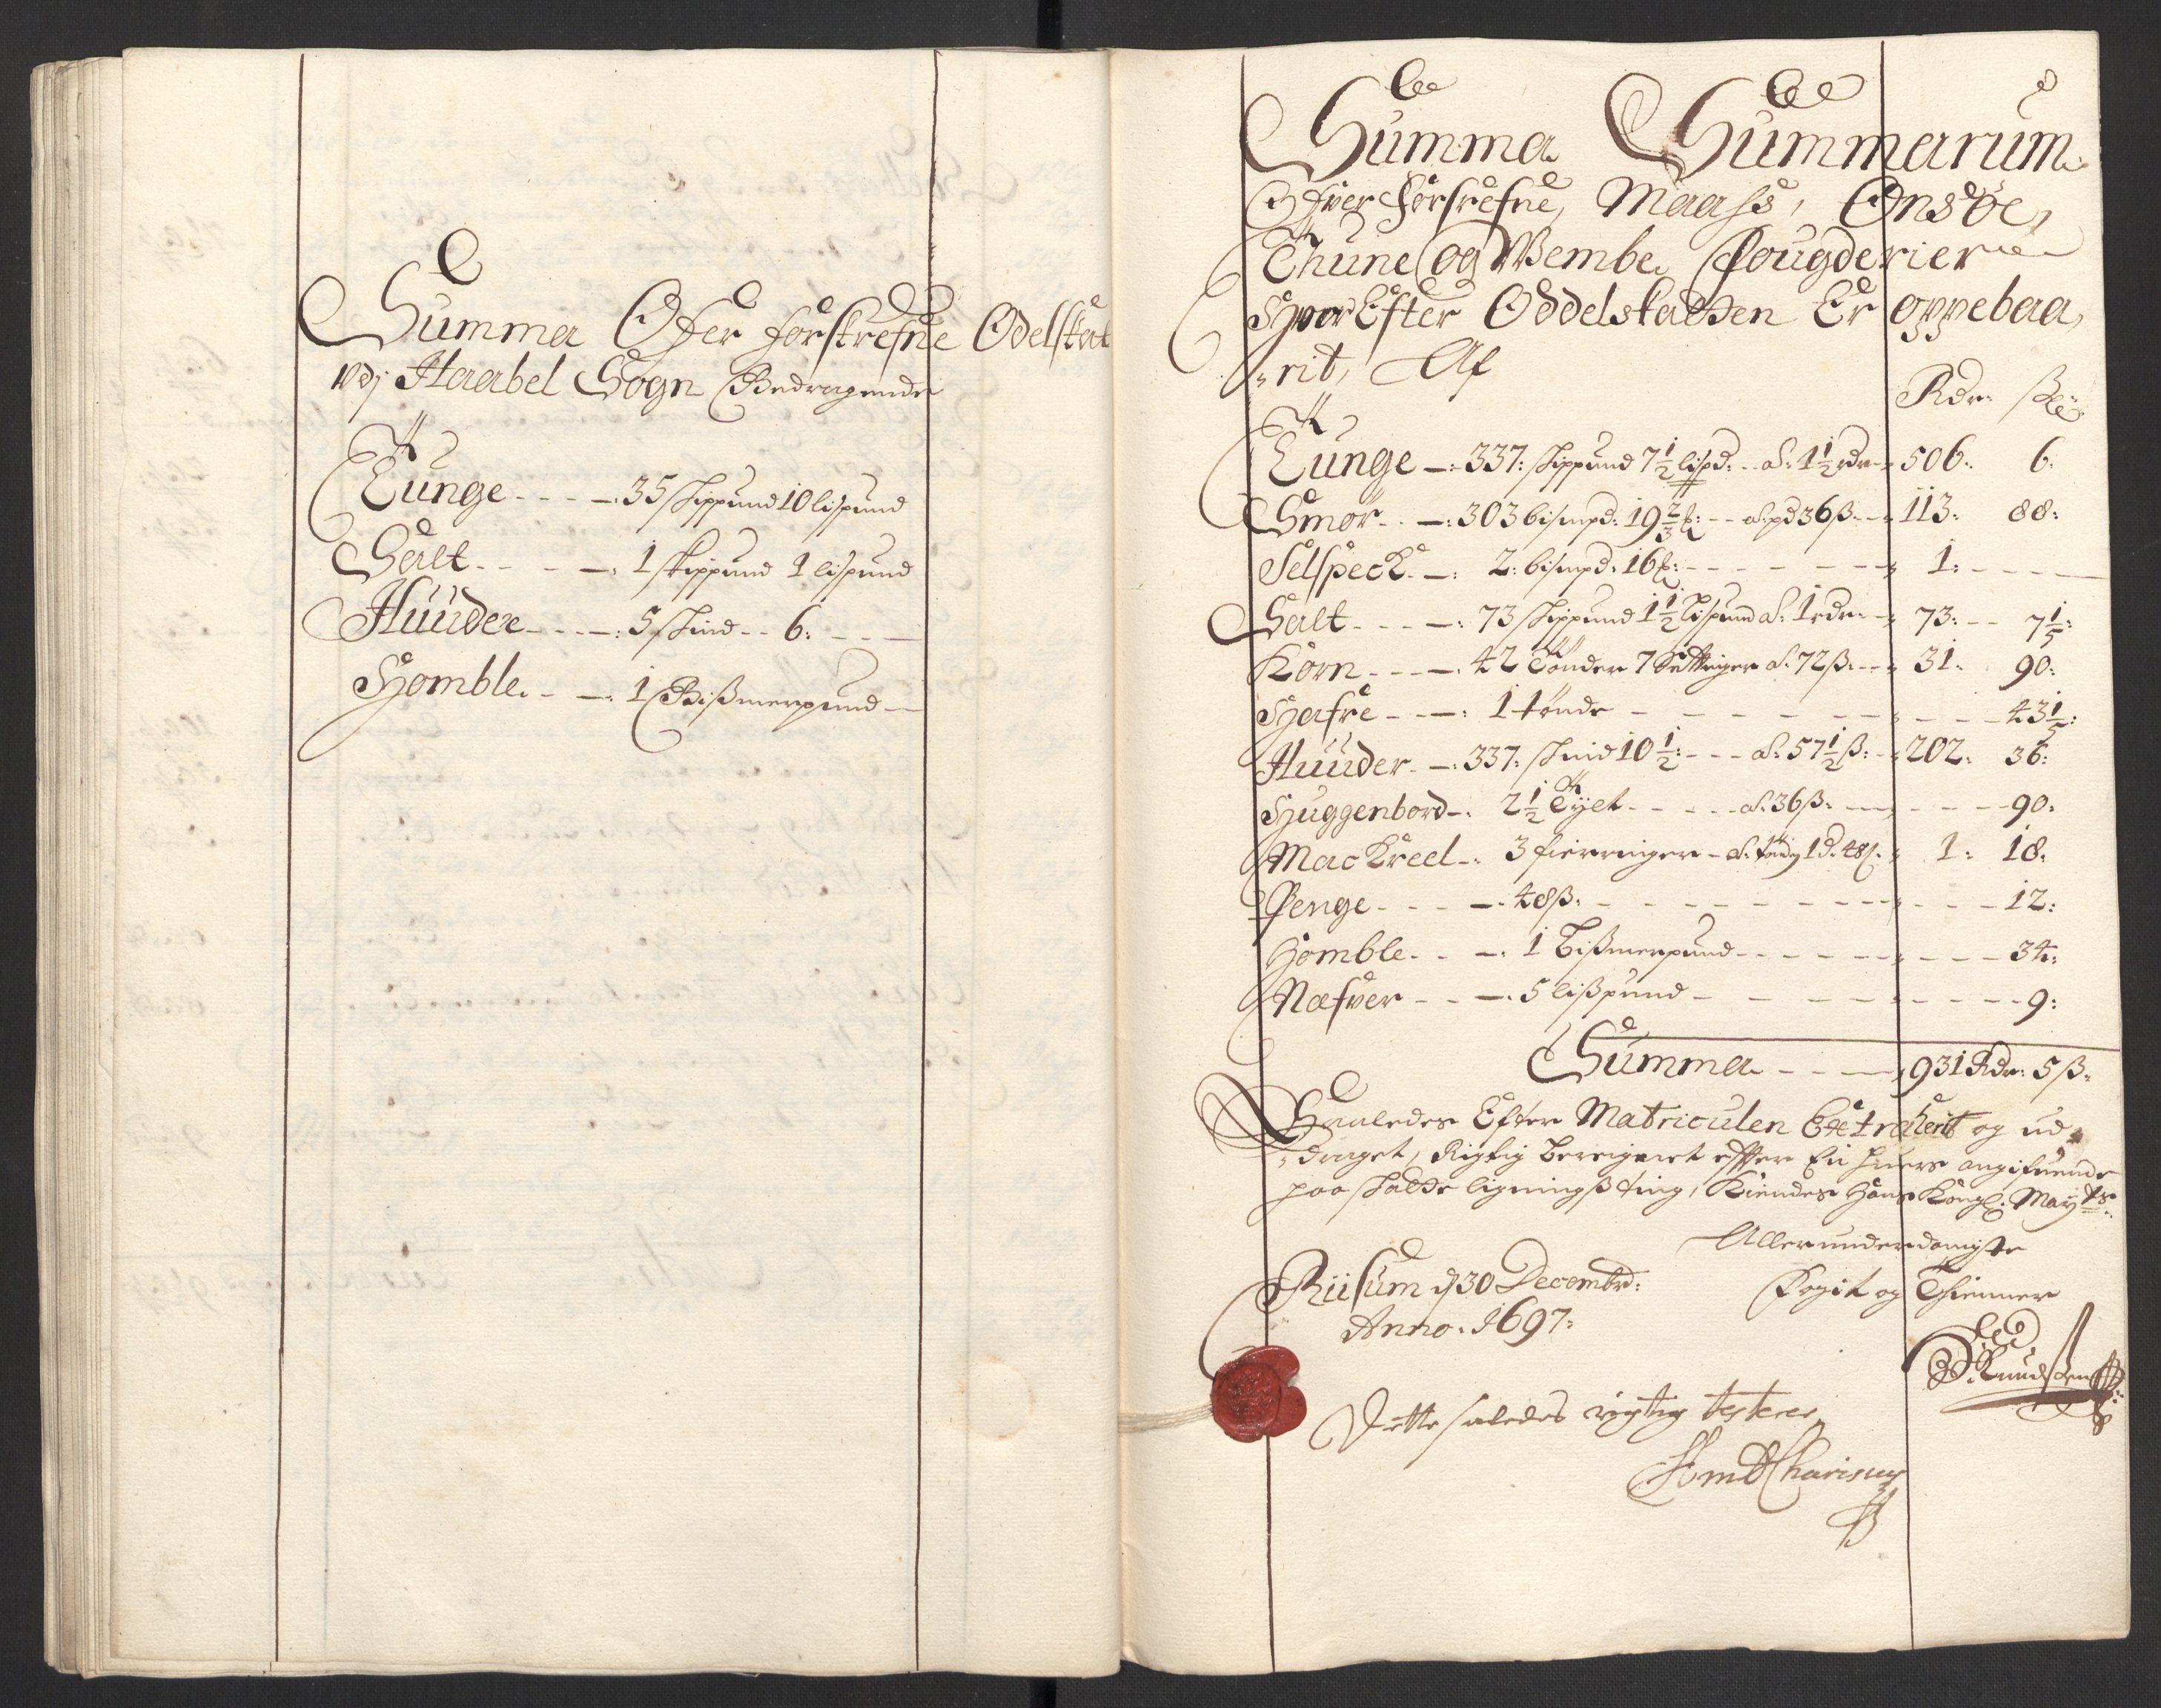 Summa Ofver forskrefne Odelskat
vdj Haabel Sogn Bedragende
Tunge - - - -: 35 skippund 10 lispund
Salt - - - -: 1 skippund 1 lispund
Huuder - - -: 5 skind - - 6: - - -
Homble - -: 1 Bißmerpund -
Summa Summarum
Ofver forskrefne, Maass, Onsøe,
Thune og Wembe Fougderier
Hvor Efter Oddelskatten Er oppebaa,
"rit, Af
Rdr: ß
Tunge -: 337: skippund 7 1/2 lispd: - a: 1 1/2 rdr - 506: 6:
Smør - -: 303 bismpd: 19 2/3 - - a: pd 36 ß - - 113: 88:
Selspeck -: 2: bismpd: 16 - - - - - - 1: - - -
Salt - - - -: 73 skippund 1 1/2 lispund a: 1 rdr - 73: - - 7 1/5:
Korn - - - -: 42 Tønder 7 Settinger a: 72 ß: - - 31: 90:
Hafre - - -: 1 tønde - - - - - - - - - 43 1/5:
Huuder - -: 337: skind 10 1/2: - - - a: 57 1/2 ß: - 202: 36:
Huggenbord -: 2 1/2 Tylt - - - - a: 36 ß: - - - - 90:
Mackreel -: 3 fierringer - a: 1 d: 48 ß: 1: 18:
Penge - - - -: 48 ß: - - - - - - - - - - 12:
Homble - - -: 1 Bißmerpund - - - - - - - 34:
Næfver - - -: 5 lißpund - - - - - - - - 9:
Summa - - - 931 Rdr: 5 ß:
Saaledes Efter Matriculen Extraherit og ud,
"draget, Rigtig beregnet efter En hvers angifvende
paa skatte ligningß ting, Kiendes Hans Kongl: Mayts
Allerunderdanigste
Riisum d 30 Decembr: Fogit og Thienner
Anno: 1697:
Knudsen
Dette saledes rigtig testerer